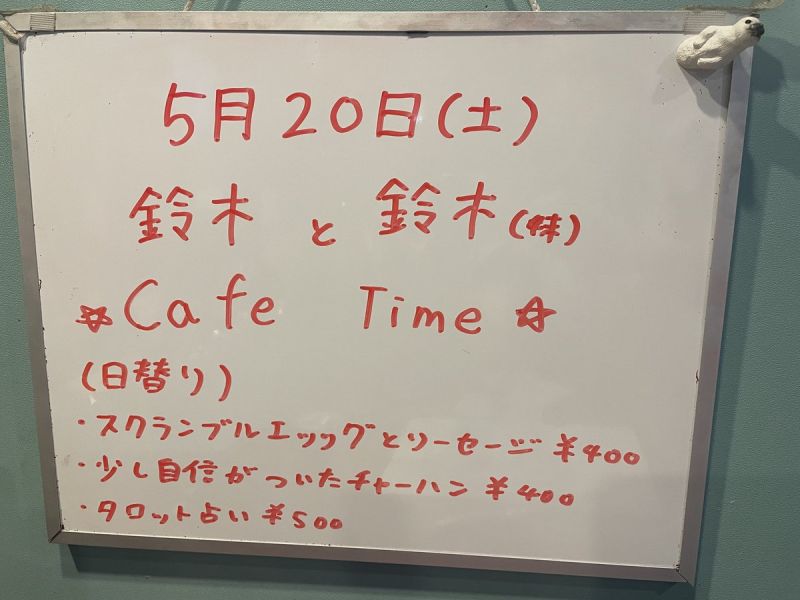 5月20日(土)
鈴木と鈴木(妹)
☆Cafe Time☆
(日替り)
・スクランブルエッグとソーセージ ¥400
・少し自信がついたチャーハン ¥400
・タロット占い ¥500